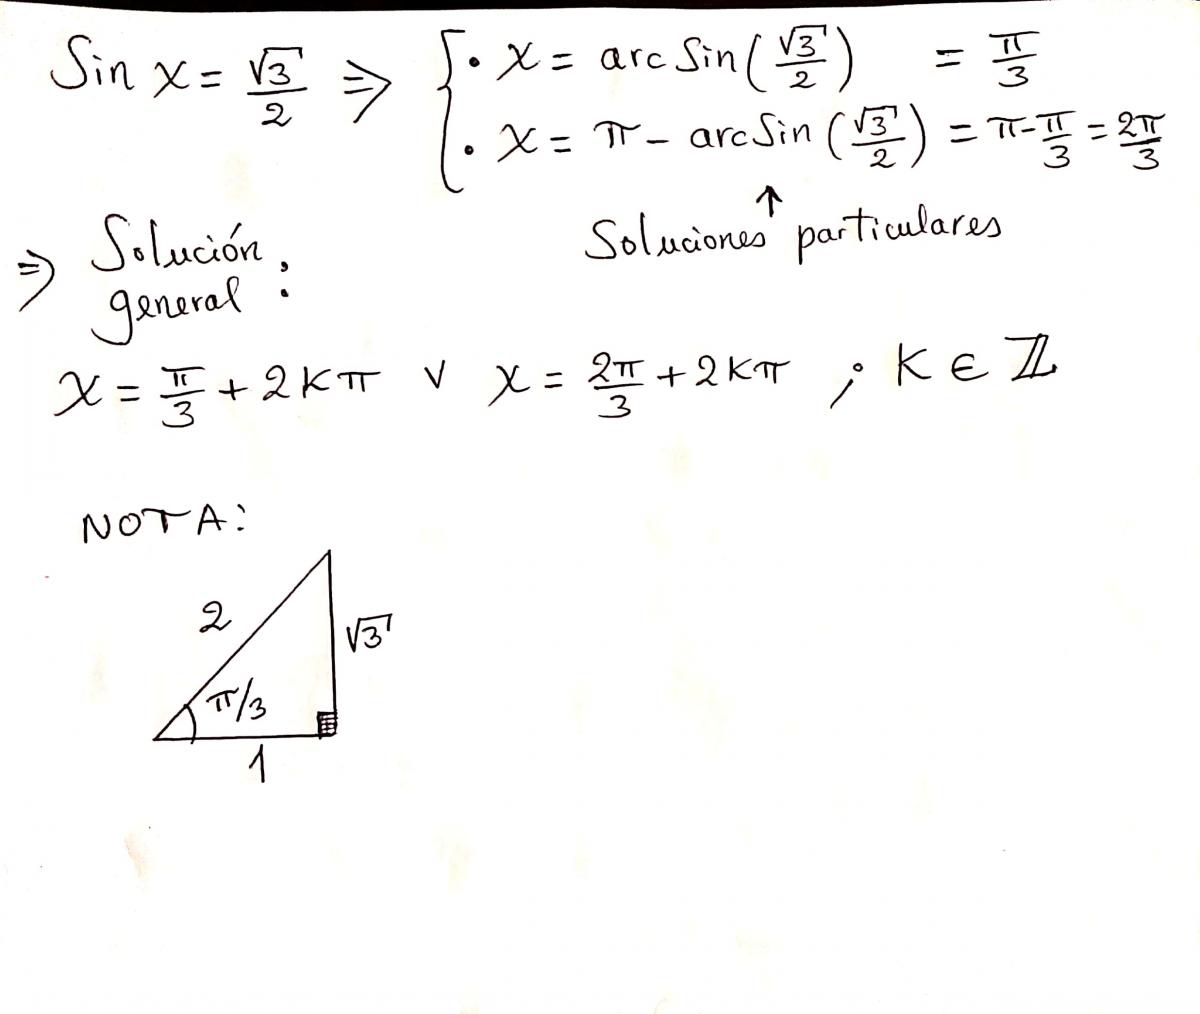 Sin x = √3/2 ⇒ { • x = arcSin(√3/2) = π/3
• x = π - arcSin(√3/2) = π - π/3 = 2π/3
↑
Soluciones particulares
⇒ Solución
general :
x = π/3 + 2kπ ∨ x = 2π/3 + 2kπ ; K ∈ ℤ
NOTA:
2
√3
π/3
1